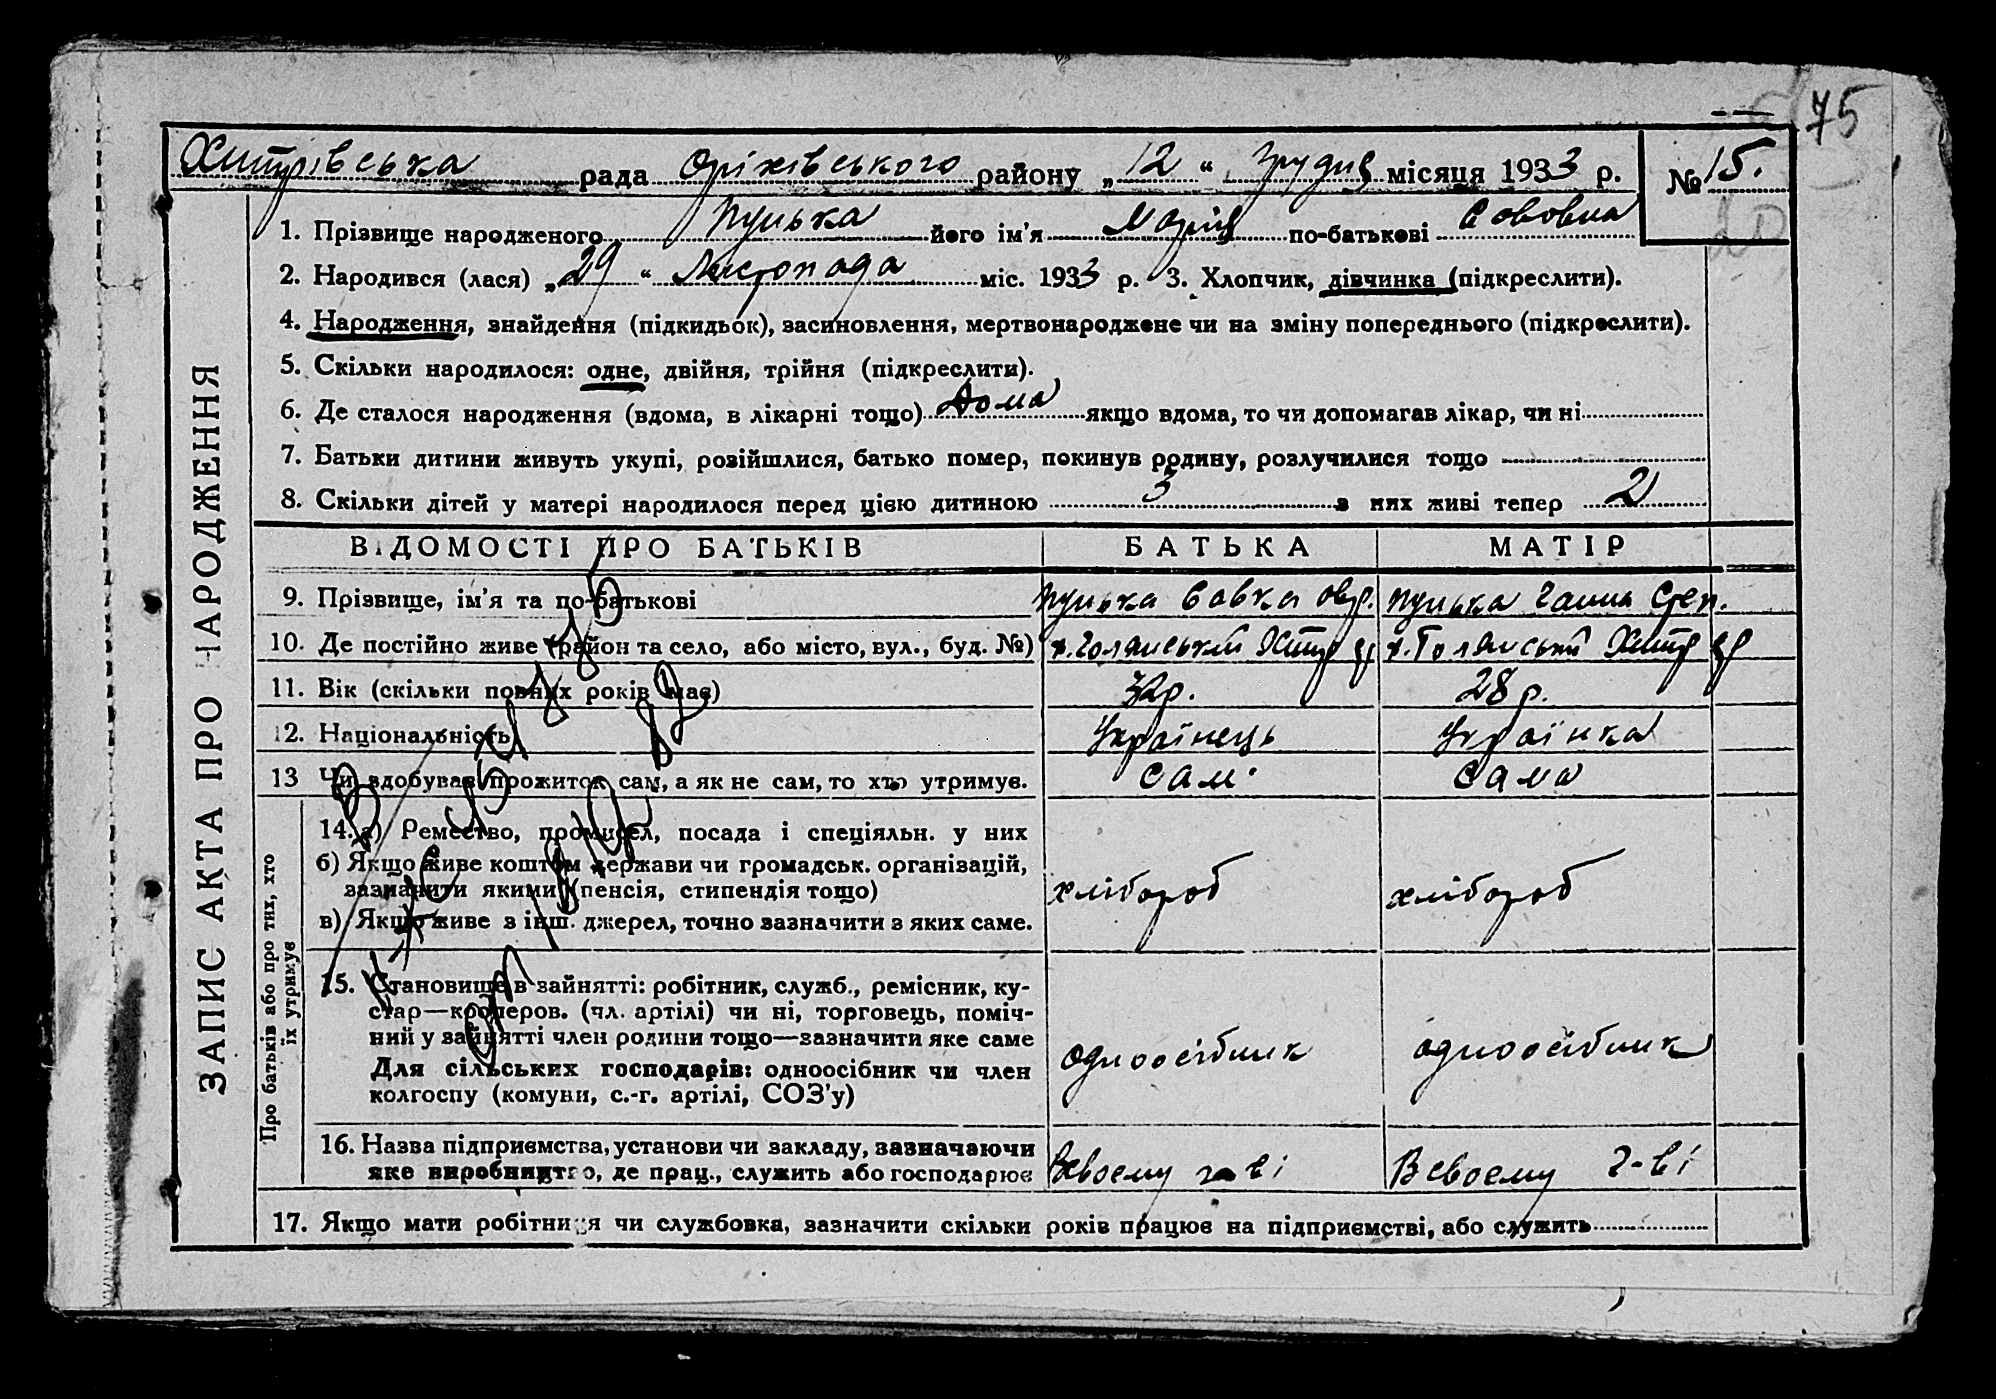 75
Хитрівська рада Оріхівського району „12“ Грудня місяця 1933 р. № 15.
1. Прізвище народженого Пунька його ім'я Марія по-батькові Савовна
2. Народився (лася) „29“ Листопада міс. 1933 р. 3. Хлопчик, дівчинка (підкреслити).
4. Народження, знайдення (підкидьок), засиновлення, мертвонароджене чи на зміну попереднього (підкреслити).
5. Скільки народилося: одне, двійня, трійня (підкреслити).
6. Де сталося народження (вдома, в лікарні тощо) Дома якщо вдома, то чи допомагав лікар, чи ні
7. Батьки дитини живуть укупі, розійшлися, батько помер, покинув родину, розлучилися тощо
8. Скільки дітей у матері народилося перед цією дитиною 3 з них живі тепер 2
ЗАПИС АКТА ПРО НАРОДЖЕННЯ
ВІДОМОСТІ ПРО БАТЬКІВ БАТЬКА МАТІР
9. Прізвище, ім'я та по-батькові Пунька Савка Пунька Ганна Степ.
10. Де постійно живе (район та село, або місто, вул., буд. №)
11. Вік (скільки повних років має) 32р. 28 р.
12. Національність Українець Українка
13 Чи здобував прожиток сам, а як не сам, то хто утримує. сам. сама
Про батьків або про тих, хто їх утримує
14. а) Ремество, промисел, посада і спеціяльн. у них
б) Якщо живе коштом держави чи громадськ. організацій,
зазначити якими (пенсія, стипендія тощо) хлібороб хлібороб
в) Якщо живе з інш. джерел, точно зазначити з яких саме.
15. Становище в зайнятті: робітник, служб., ремісник, ку-
стар—кооперов. (чл. артілі) чи ні, торговець, поміч-
ний у зайнятті член родини тощо—зазначити яке саме
Для сільських господарів: одноосібник чи член одноосібник одноосібник
колгоспу (комуни, с.-г. артілі, СОЗ'у)
16. Назва підприємства, установи чи закладу, зазначаючи
яке виробництво, де прац., служить або господарює Всвоему г-ві Всвоему г-ві
17. Якщо мати робітниця чи службовка, зазначити скільки років працює на підприємстві, або служить